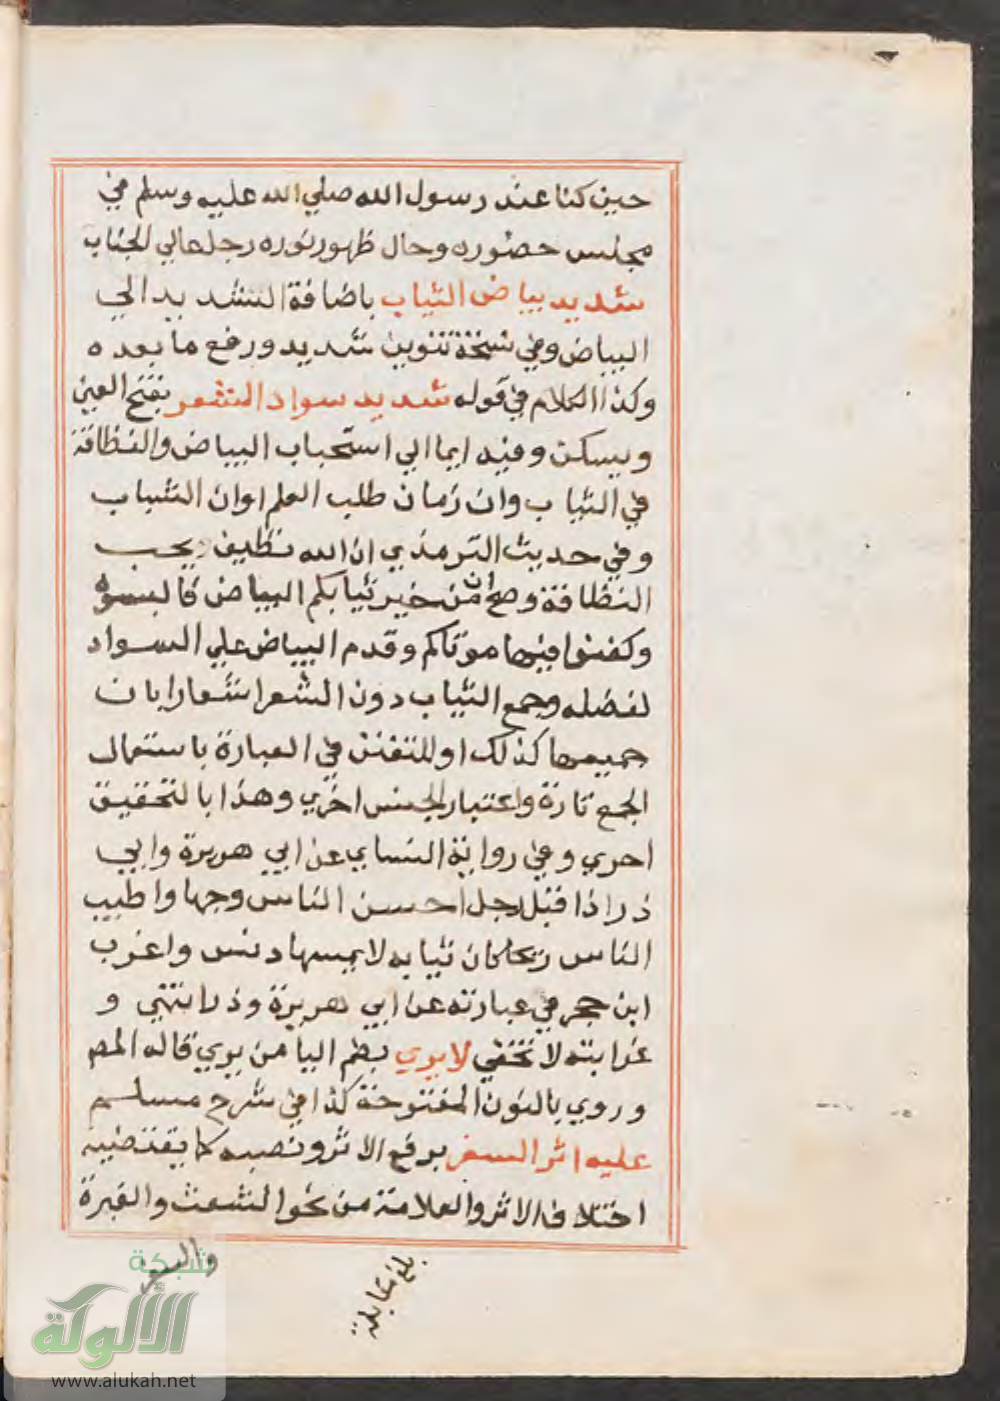 حين كنا عند رسول الله صلي الله عليه وسلم في
مجلس حضوره وحال ظهور نوره رجل عالي الجناب
شديد بياض الثياب باضافة الشديد الي
البياض وفي نسخة تنوين شديد ورفع ما بعده
وكذا الكلام في قوله شديد سواد الشعر بفتح العين
ويسكن وفيه ايما الي استحباب البياض والنظافة
في الثياب وان زمان طلب العلم اوان الشباب
وفي حديث الترمذي ان الله نظيف يحب
النظافة وصح ان من خير ثيابكم البياض فالبسوه
وكفنوا فيها موتاكم وقدم البياض علي السواد
لفضله وجمع الثياب دون الشعر اشعارا بان
جميعها كذلك او للتفنن في العبارة باستعمال
الجمع تارة واعتبار الجنس اخري وهذا بالتحقيق
احري وفي رواية النسايي عن ابي هريرة وابي
ذر اذا قبل رجل احسن الناس وجها واطيب
الناس ريحا كان ثيابه لا يمسها دنس واغرب
ابن حجر في عبارته عن ابي هريرة وذر انتهي و
غرابته لا تخفي لا يري بضم اليا من يري قاله المص
وروي بالنون المفتوحة كذا في شرح مسلم
عليه اثر السفر برفع الاثر ونصبه كما يقتضيه
اختلاف الاثر والعلامة من نحو الشعث والغبرة
بلغ مقابلة
شبكة
الألوكة
www.alukah.net